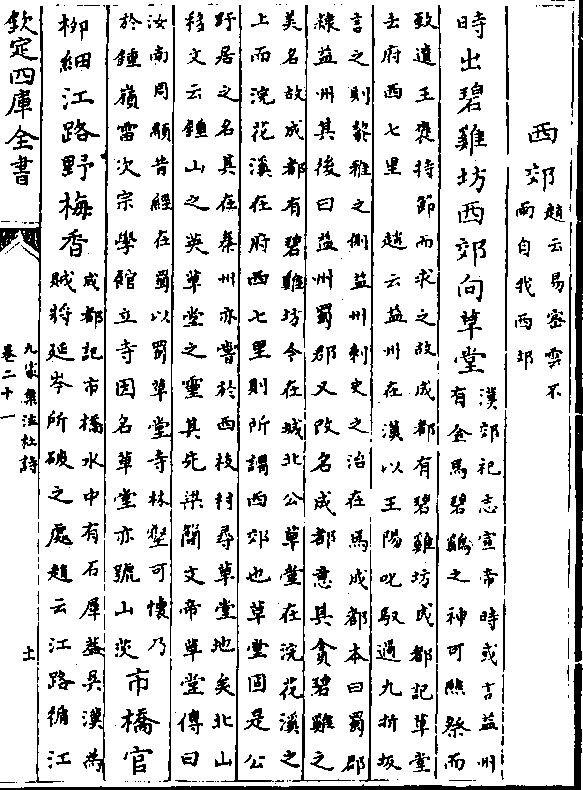 西郊
趙云易密雲不
雨自我西郊
時出碧雞坊西郊向草堂
漢郊祀志宣帝時或言益州
有金馬碧鷄之神可醮祭而
致遣王襃持節而求之故成都有碧雞坊成都記草堂
去府西七里 趙云益州在漢以王陽叱馭過九折坂
言之則黎雅之側益州刺史之治在焉成都本曰蜀郡
隸益州其後曰益州蜀郡又改名成都意其貪碧雞之
美名故成都有碧雞坊今在城北公草堂在浣花溪之
上而浣花溪在府西七里則所謂西郊也草堂固是公
野居之名具在秦州亦嘗於西枝村尋草堂地矣北山
移文云鍾山之英草堂之靈其先梁簡文帝草堂傳曰
汝南周顒昔經在蜀以蜀草堂寺林壑可懷乃
於鍾嶺雷次宗學館立寺因名草堂亦號山茨
市橋官
柳細江路野梅香
成都記市橋水中有石犀蓋吳漢為
賊將延岑所破之處趙云江路循江
欽定四庫全書
九家集注杜詩
卷二十一
十一